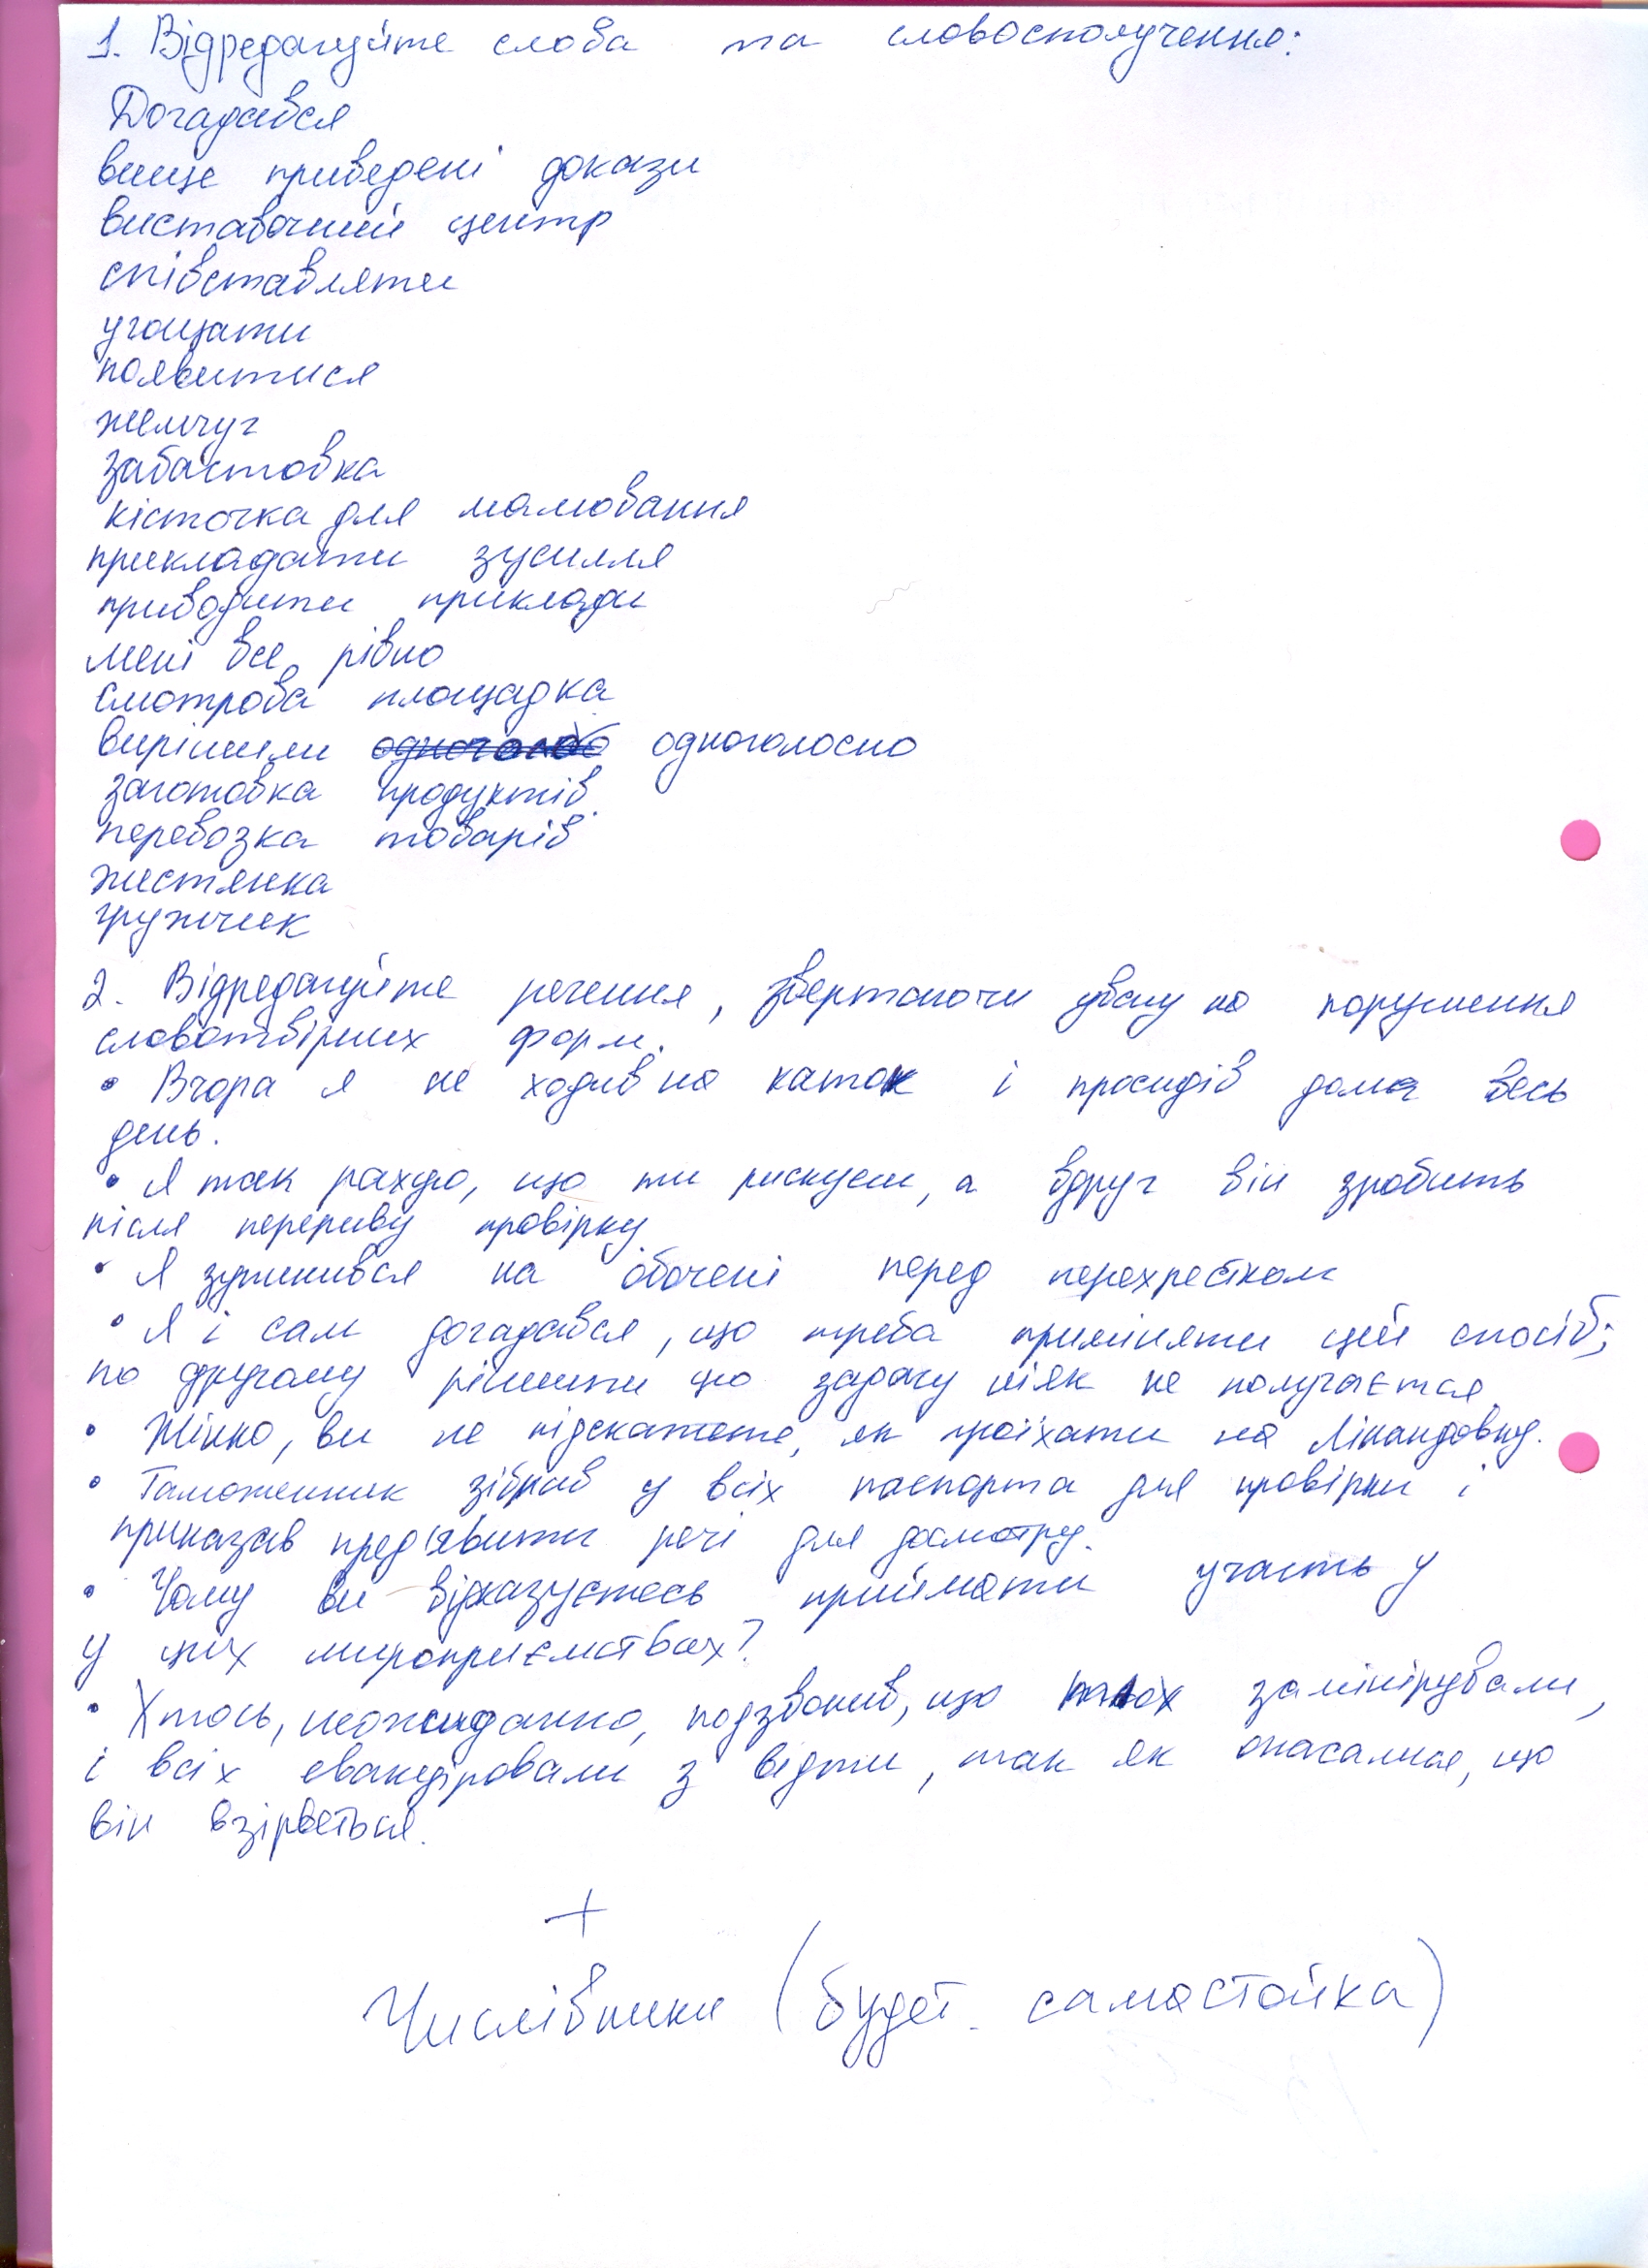 1. Відредагуйте слова та словосполучення:
Догадався
вище приведені докази
виставочний центр
співставляти
угощати
появитися
жемчуг
забастовка
кісточка для малювання
прикладати зусилля
приводити приклади
мені все рівно
смотрова площадка
вирішили одноголосно
заготовка продуктів
перевозка товарів
жестянка
гружчик
2. Відредагуйте речення, звертаючи увагу на порушення
словотвірних форм.
• Вчора я не ходив на каток і просидів дома весь
день.
• Я так рахую, що ти рискуєш, а вдруг він зробить
після перериву провірку.
• Я зупинився на обочені перед перехрестком
• Я і сам догадався, що треба приміняти цей спосіб;
по другому рішити цю задачу ніяк не получається
• Жінко, ви не підскажете, як проїхати на
• Таможенник зібрав у всіх паспорта для провірки і
приказав пред'явити речі для досмотру.
• Чому ви відказуєтесь приймати участь у
у цих мироприємствах?
• Хтось, неожидано, подзвонив, що замінірували,
і всіх евакуіровали з відти, так як опасалися, що
він взірветься.
+
Числівники (будет самостойка)